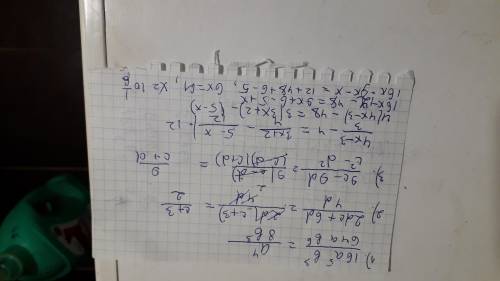 1) 16a⁵b³/64ab⁶ = a⁴/8b³
2) 2dc+6d/4d = 2d(c+3)/4d = c+3/2
3) 9c-9d/c²-d² = 9(c-d)/(c-d)(c+d) = 9/c+d
4x-3/3 - 4 = 3x+2/4 - 5-x/12 | · 12
4(4x-3) - 48 = 3(3x+2) - (5-x)
16x-12-48 = 9x+6-5+x
16x-9x-x = 12+48+6-5, 6x=61, x=10 1/6